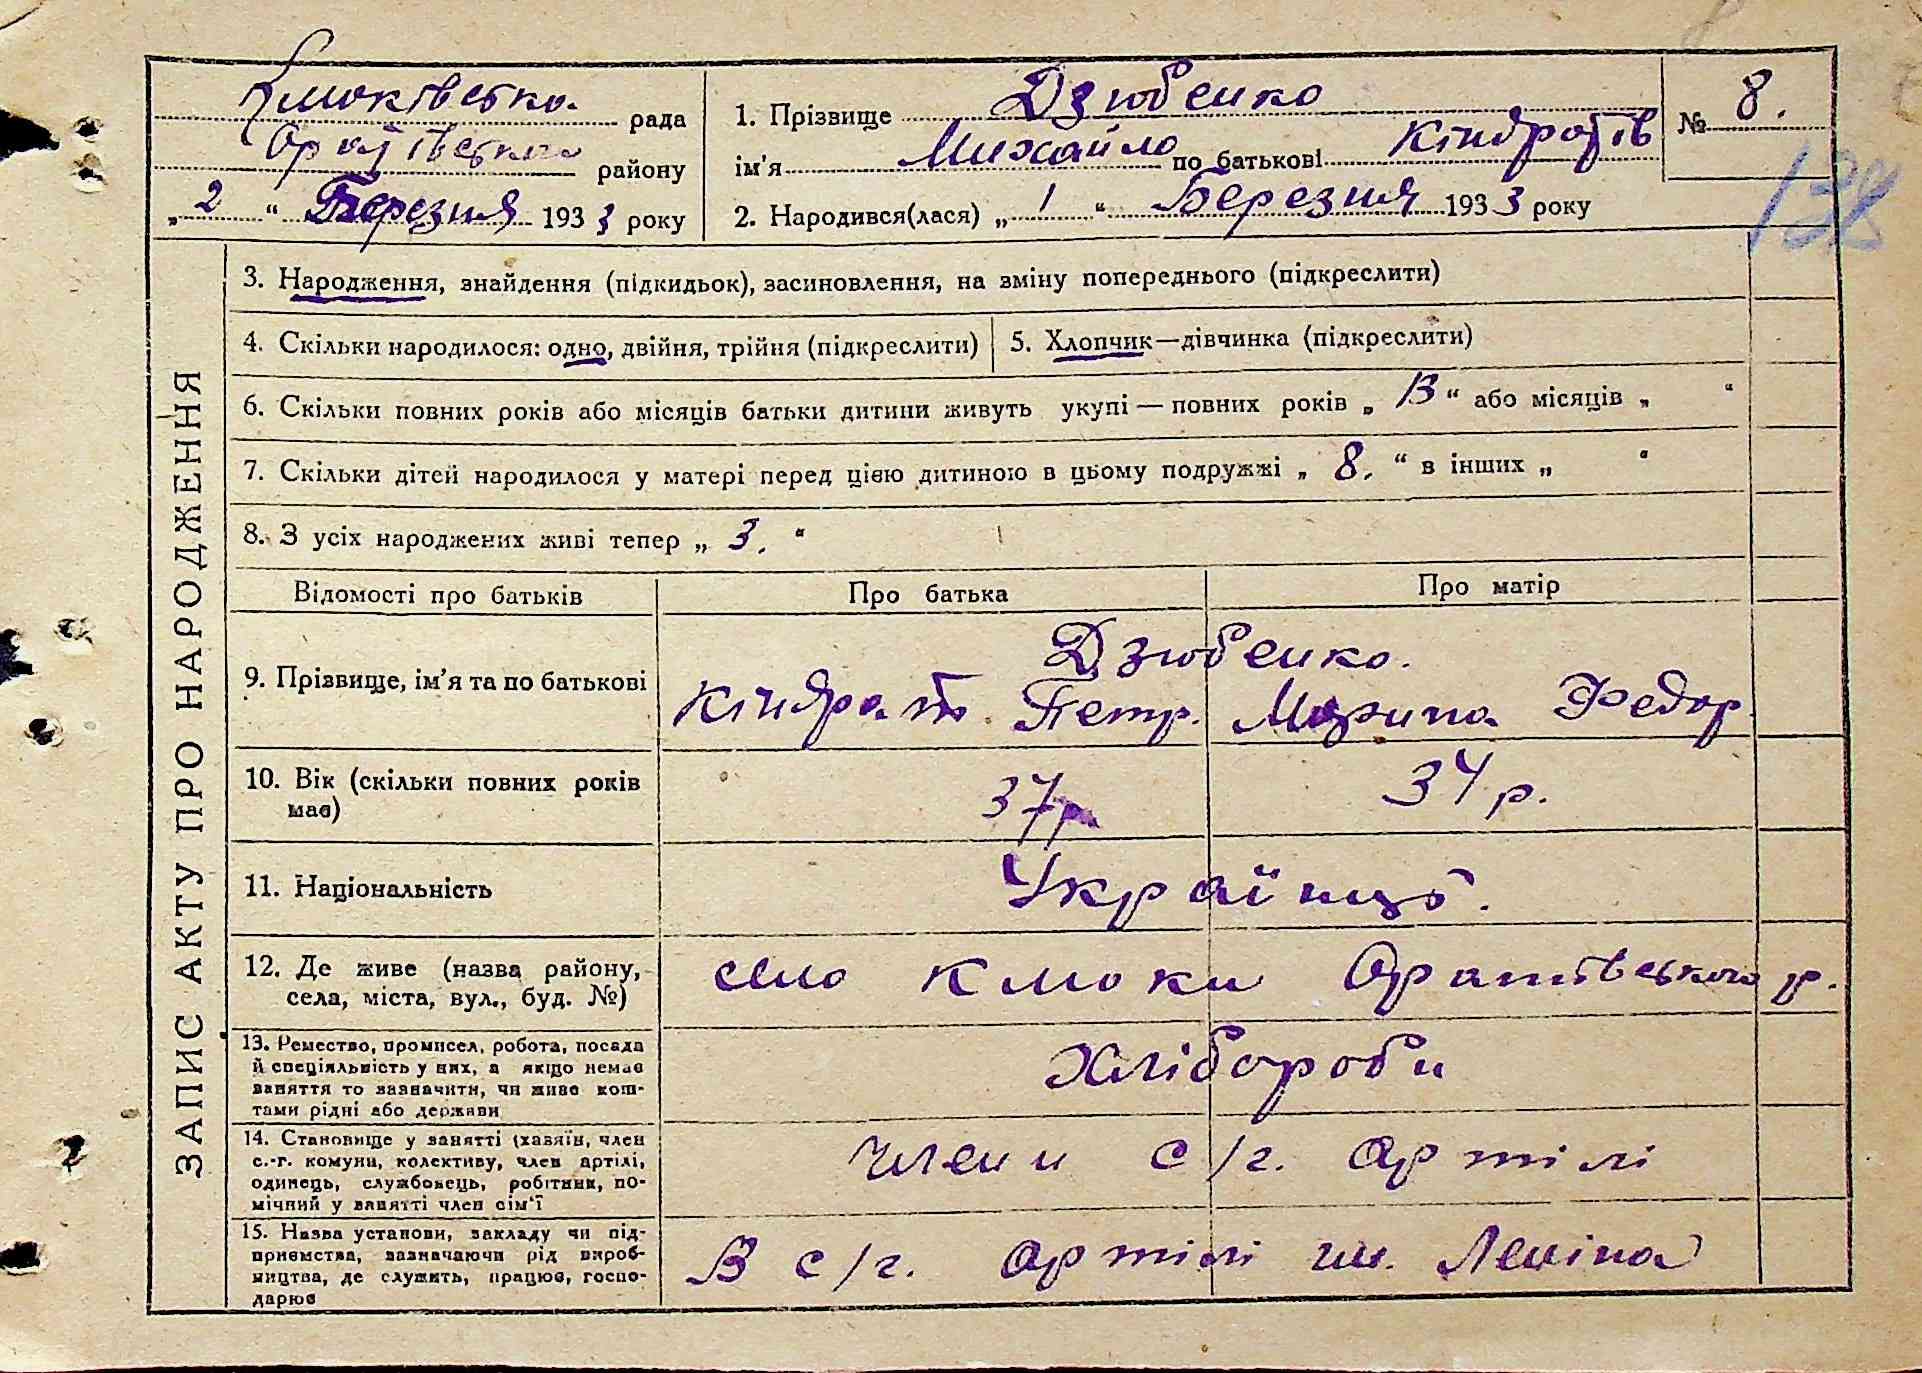 Клюківська рада
Оратівського району
„2“ Березня 1933 року
1. Прізвище Дзюбенко
ім’я Михайло по батькові Кіндратів
2. Народився(лася) „1“ Березня 1933 року
№ 8.
138
ЗАПИС АКТУ ПРО НАРОДЖЕННЯ
3. Народження, знайдення (підкидьок), засиновлення, на зміну попереднього (підкреслити)
4. Скільки народилося: одно, двійня, трійня (підкреслити)
5. Хлопчик—дівчинка (підкреслити)
6. Скільки повних років або місяців батьки дитини живуть укупі — повних років „13“ або місяців „ “
7. Скільки дітей народилося у матері перед цією дитиною в цьому подружжі „8.“ в інших „ “
8. З усіх народжених живі тепер „3.“
Відомості про батьків
Про батька
Про матір
9. Прізвище, ім’я та по батькові
Дзюбенко.
Кіндрат Петр. Марина Федор
10. Вік (скільки повних років
має)
37р
34 р.
11. Національність
Українці.
12. Де живе (назва району,
села, міста, вул., буд. №)
село Клюки Оратівського р.
13. Ремество, промисел, робота, посада
й спеціяльність у них, а якщо немає
заняття то зазначити, чи живе кош-
тами рідні або держави
Хлібороби
14. Становище у занятті (хазяїн, член
с.-г. комуни, колективу, член артілі,
одинець, службовець, робітник, по-
мічний у занятті член сім’ї
члени с/г. артілі
15. Назва установи, закладу чи під-
приємства, зазначаючи рід вироб-
ництва, де служить, працює, госпо-
дарює
В с/г. артілі ім. Леніна